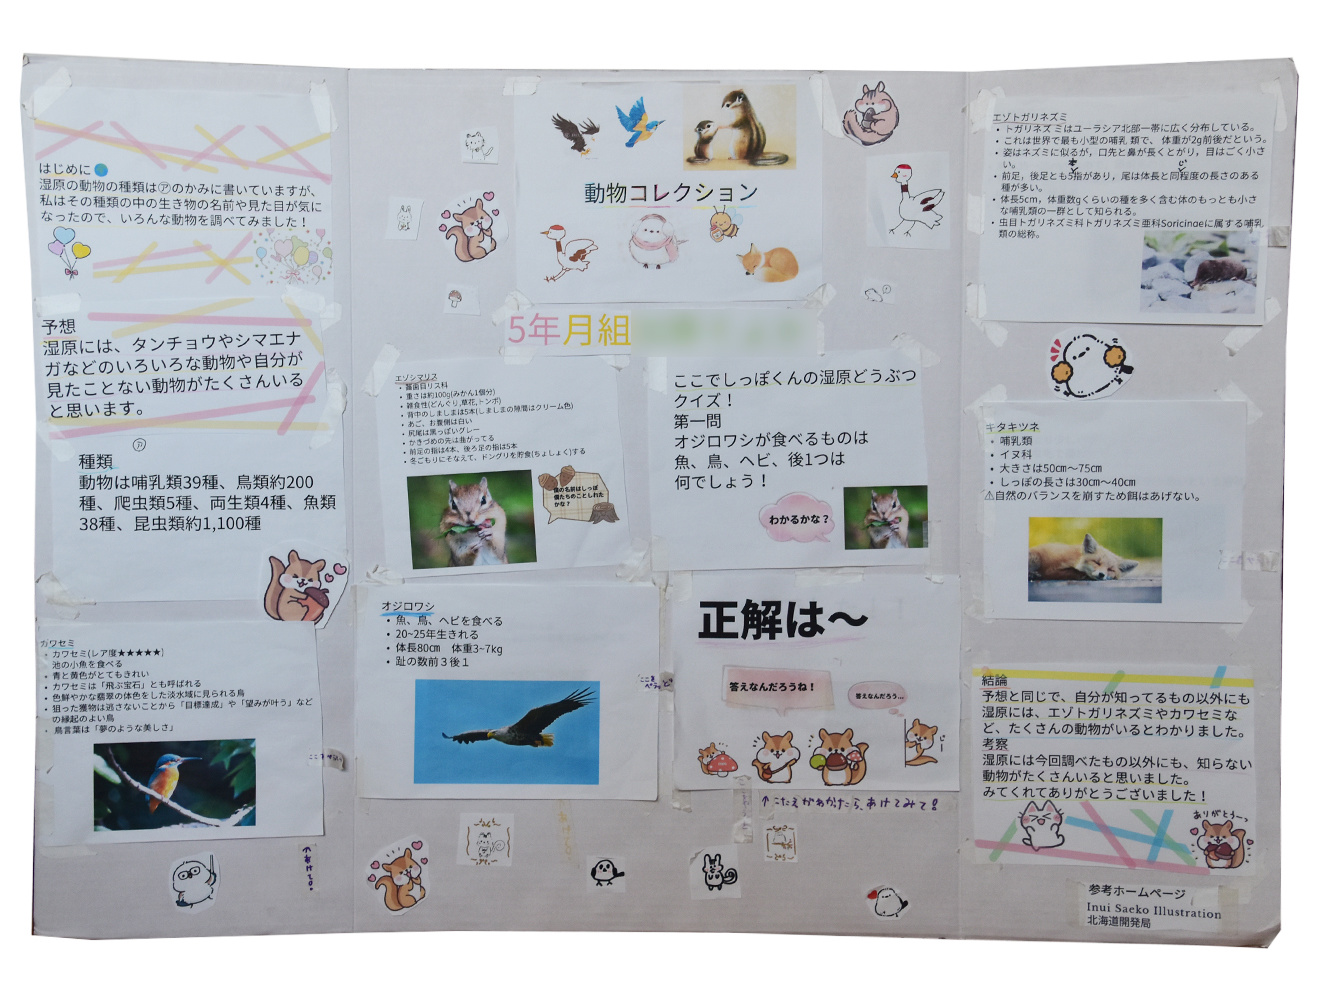 はじめに
湿原の動物の種類は㋐のかみに書いていますが、
私はその種類の中の生き物の名前や見た目が気に
なったので、いろんな動物を調べてみました！
予想
湿原には、タンチョウやシマエナ
ガなどのいろいろな動物や自分が
見たことない動物がたくさんいる
と思います。
㋐
種類
動物は哺乳類39種、鳥類約200
種、爬虫類5種、両生類4種、魚類
38種、昆虫類約1,100種
カワセミ
• カワセミ(レア度★★★★★)
池の小魚を食べる
• 青と黄色がとてもきれい
• カワセミは「飛ぶ宝石」とも呼ばれる
• 色鮮やかな翡翠の体色をした淡水域に見られる鳥
• 狙った獲物は逃さないことから「目標達成」や「望みが叶う」など
の縁起のよい鳥
• 鳥言葉は「夢のような美しさ」
↑あけてね。
動物コレクション
5年月組
エゾシマリス
• 齧歯目リス科
• 重さは約100g(みかん1個分)
• 雑食性(どんぐり,草花,トンボ)
• 背中のしましまは5本(しましまの隙間はクリーム色)
• あご、お腹側は白い
• 尻尾は黒っぽいグレー
• かぎづめの先は曲がってる
• 前足の指は4本、後ろ足の指は5本
• 冬ごもりにそなえて、ドングリを貯食(ちょしょく)する
僕の名前はしっぽ
僕たちのことしれた
かな？
ここでしっぽくんの湿原どうぶつ
クイズ！
第一問
オジロワシが食べるものは
魚、鳥、ヘビ、後1つは
何でしょう！
わかるかな？
オジロワシ
• 魚、鳥、ヘビを食べる
• 20~25年生きれる
• 体長80㎝　体重3~7kg
• 趾の数前３後１
正解は～
答えなんだろうね！
答えなんだろう...
じー
↑こたえがわかったら、あけてみて！
エゾトガリネズミ
• トガリネズミはユーラシア北部一帯に広く分布している。
• これは世界で最も小型の哺乳類で、体重が2g前後だという。
• 姿はネズミに似るが、口先と鼻が長くとがり、目はごく小さ
い。
• 前足、後足とも5指があり、尾は体長と同程度の長さのある
種が多い。
• 体長5cm，体重数gくらいの種を多く含む体のもっとも小さ
な哺乳類の一群として知られる。
• 虫目トガリネズミ科トガリネズミ亜科Soricinaeに属する哺乳
類の総称。
キタキツネ
• 哺乳類
• イヌ科
• 大きさは50㎝～75㎝
• しっぽの長さは30㎝～40㎝
⚠自然のバランスを崩すため餌はあげない。
結論
予想と同じで、自分が知ってるもの以外にも
湿原には、エゾトガリネズミやカワセミな
ど、たくさんの動物がいるとわかりました。
考察
湿原には今回調べたもの以外にも、知らない
動物がたくさんいると思いました。
みてくれてありがとうございました！
ありがとうーっ
参考ホームページ
Inui Saeko Illustration
北海道開発局